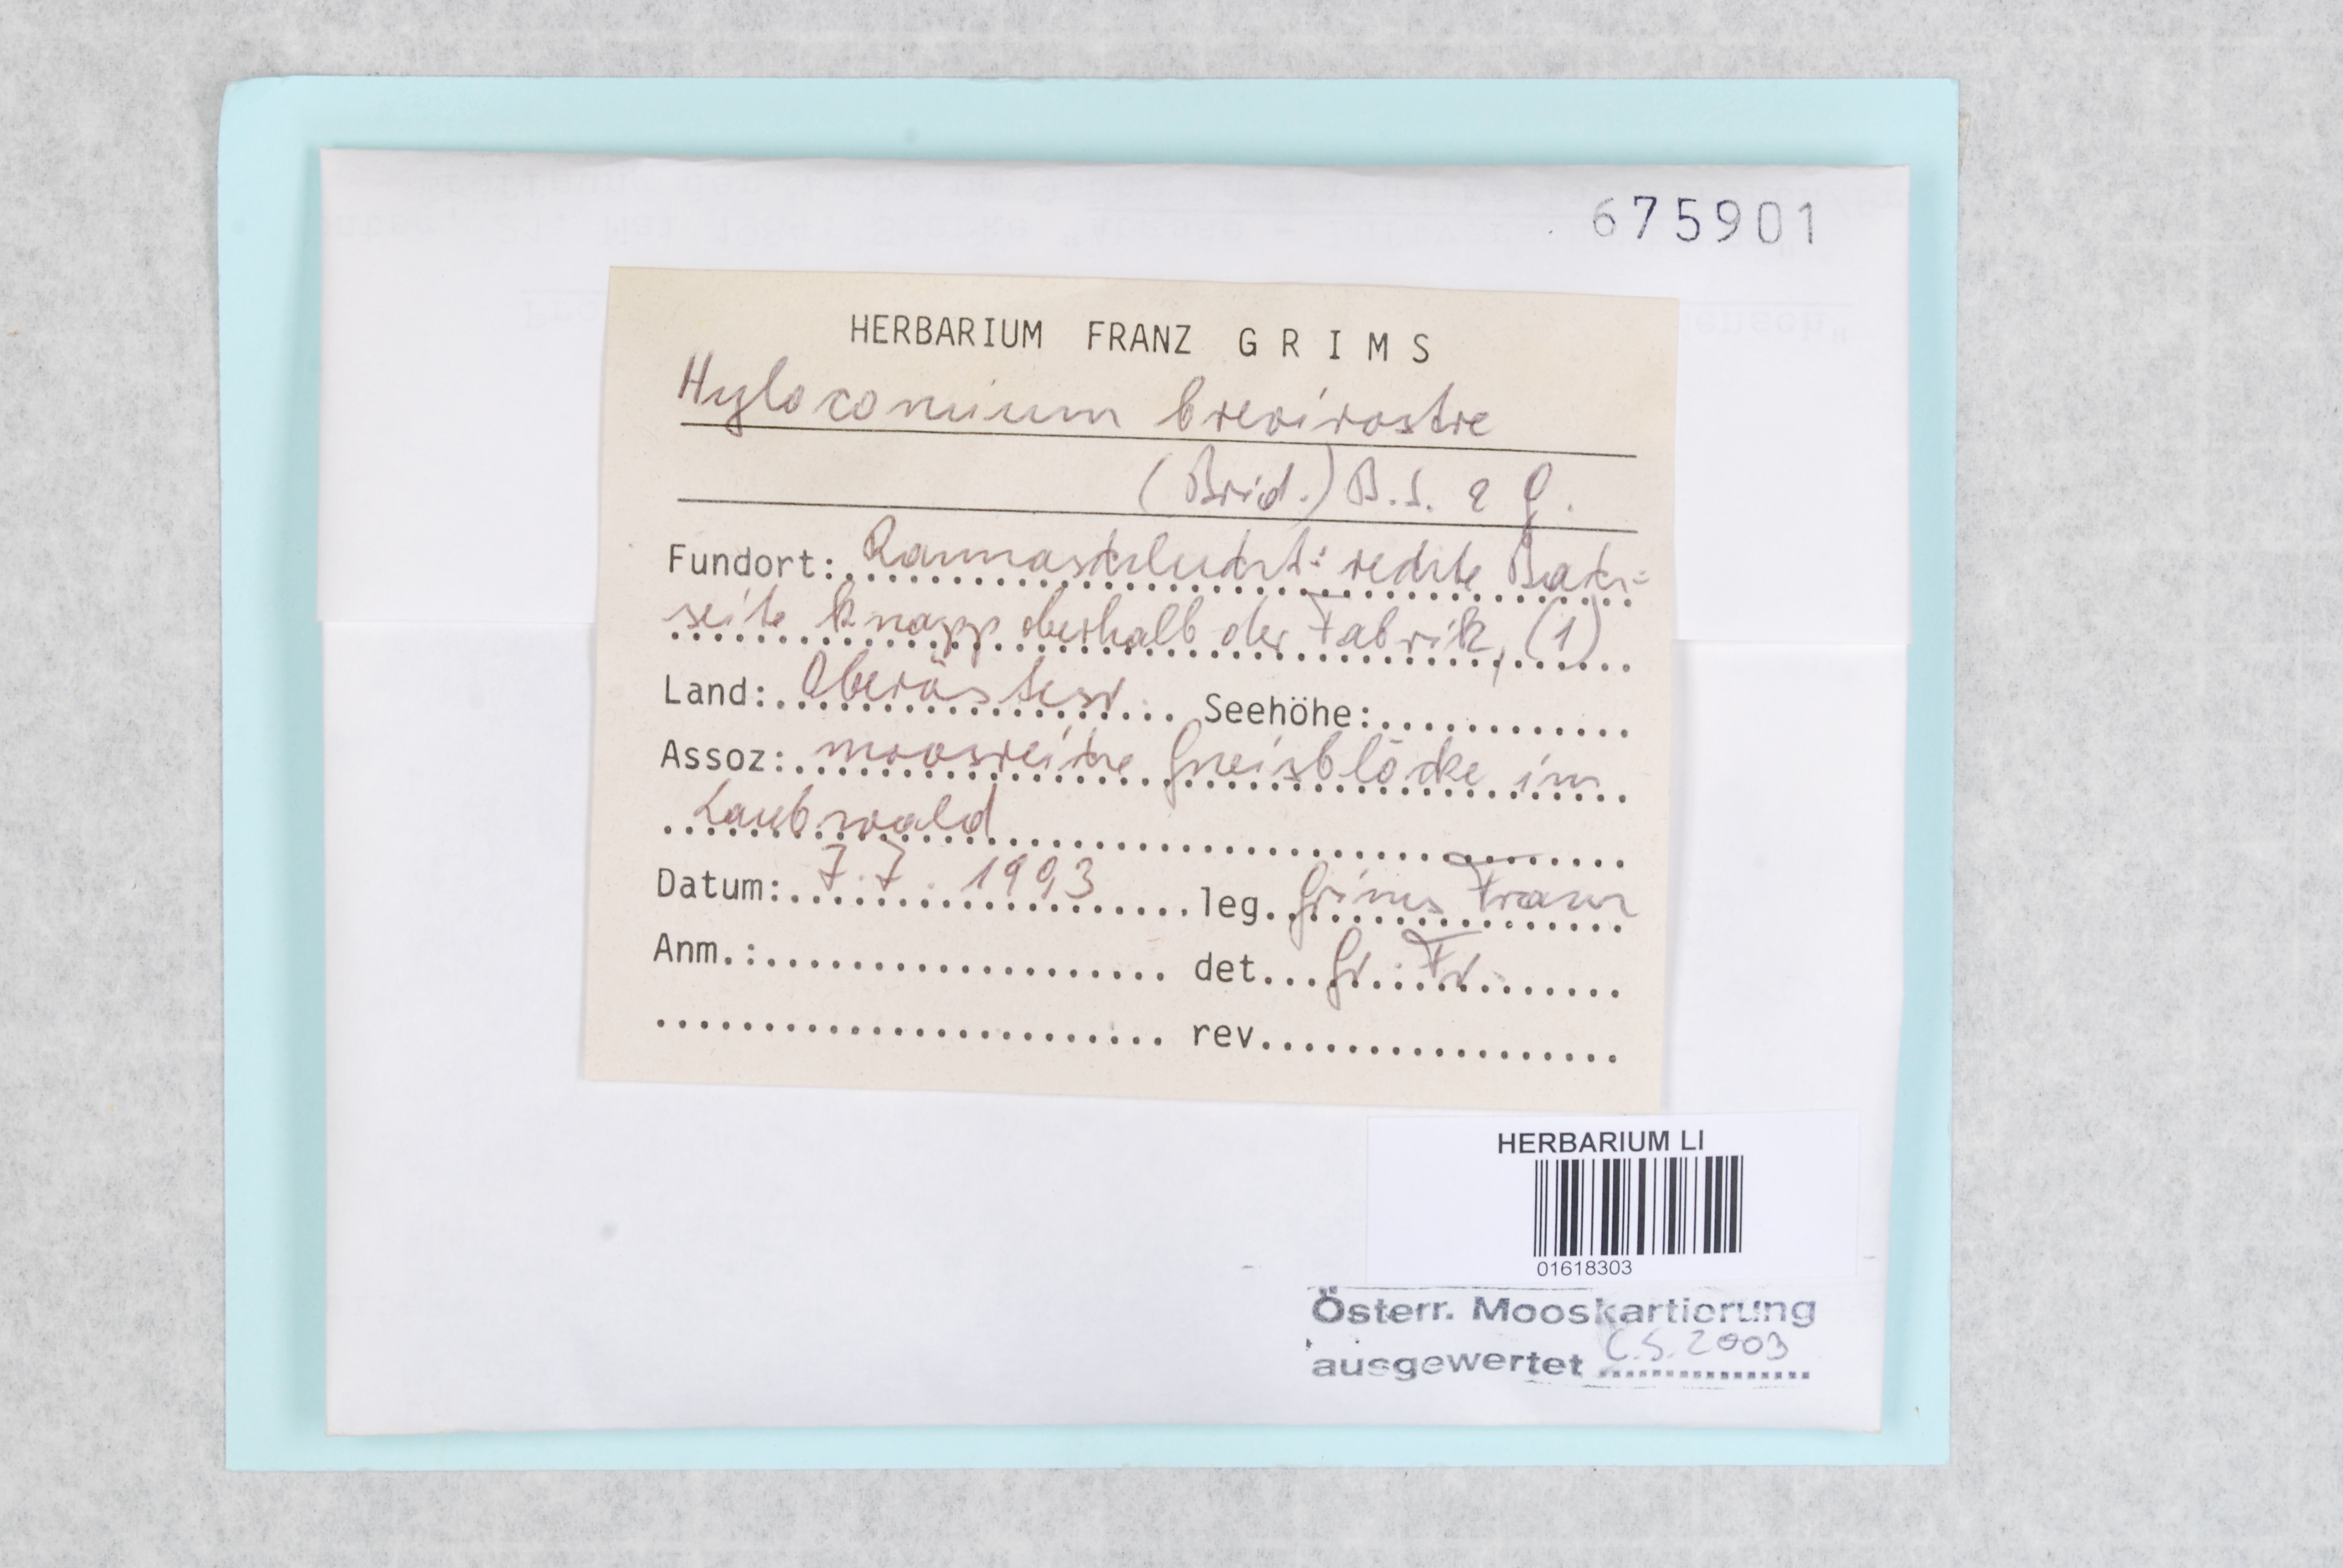 675901
HERBARIUM FRANZ G R I M S
Hylocomium brevirostre
(Brid.) B.S. & G.
Fundort: Rannaschlucht: rechte Bach=
seite knapp oberhalb der Fabrik, (1)
Land: Oberösterr. Seehöhe:
Assoz: moosreiche Gneisblöcke im
Laubwald
Datum: 7.7. 1993 leg. Grims Franz
Anm.: det. Gr. Fr.
rev.
HERBARIUM LI
01618303
Österr. Mooskartierung
ausgewertet C.S. 2003